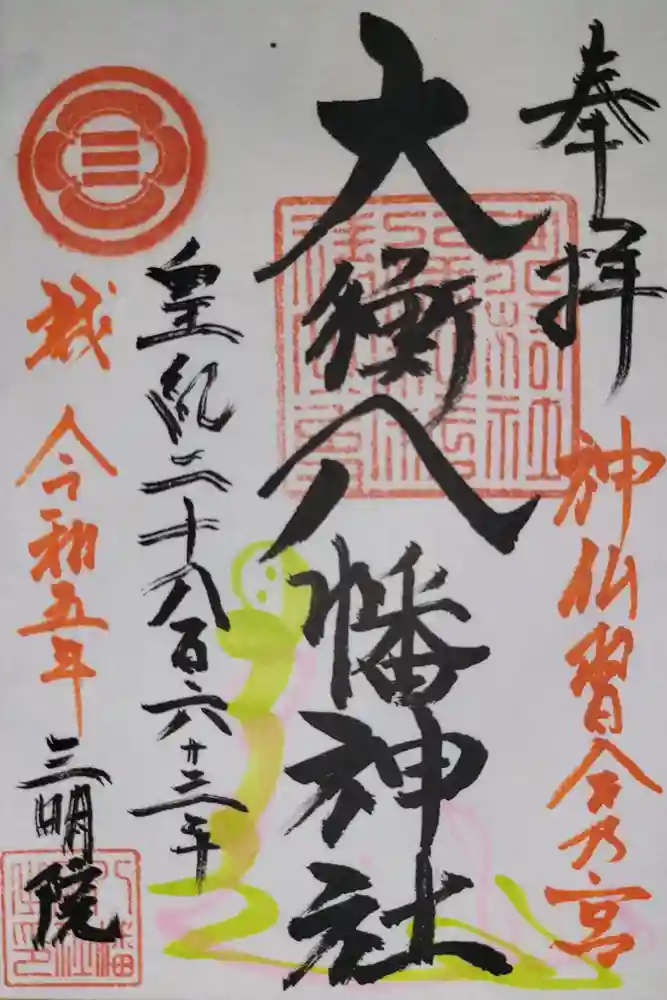 奉拝
神仏習合乃宮
大衡八幡神社
皇紀二十八百六十三年
令和五年
三明院